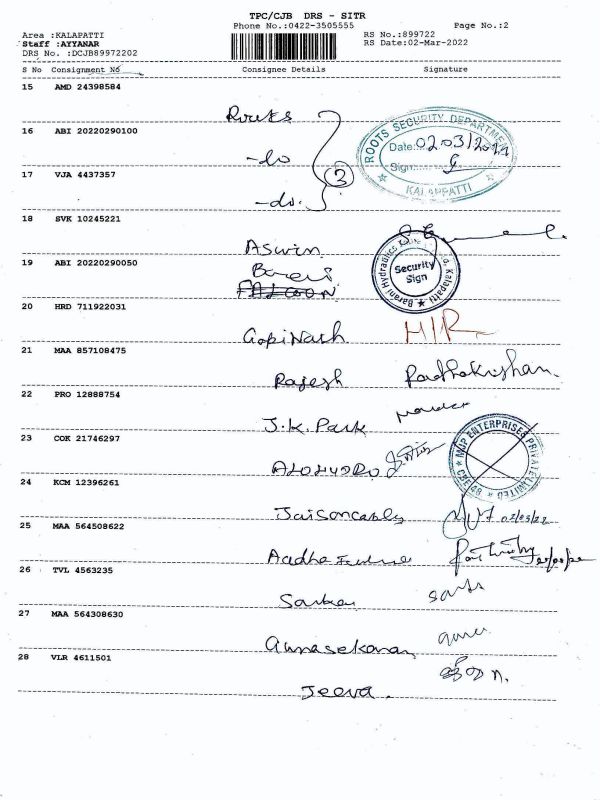 TPC/CJB DRS - SITR
Phone No.:0422-3505555 Page No.:2
Area :KALAPATTI RS No.:899722
Staff :AYYANAR RS Date:02-Mar-2022
DRS No. :DCJB89972202
S No Consignment No Consignee Details Signature
15 AMD 24398584
Roots
16 ABI 20220290100
-do
17 VJA 4437357
-do.
3
ROOTS SECURITY DEPARTMENT
Date: 02/03/2022
Sign:
KALAPPATTI
18 SVK 10245221
Aswin
19 ABI 20220290050
Barani
FALCOON
Barani Hydraulics Kalapatti
Security
Sign
20 HRD 711922031
Gopinath
21 MAA 857108475
Rajesh Radhakrishnan
22 PRO 12888754
J.K. Park
23 COK 21746297
MJP ENTERPRISES PRIVATE LIMITED
24 KCM 12396261
02/03/22
25 MAA 564508622
26 TVL 4563235
27 MAA 564308630
Gunasekaran
28 VLR 4611501
Jeeva.